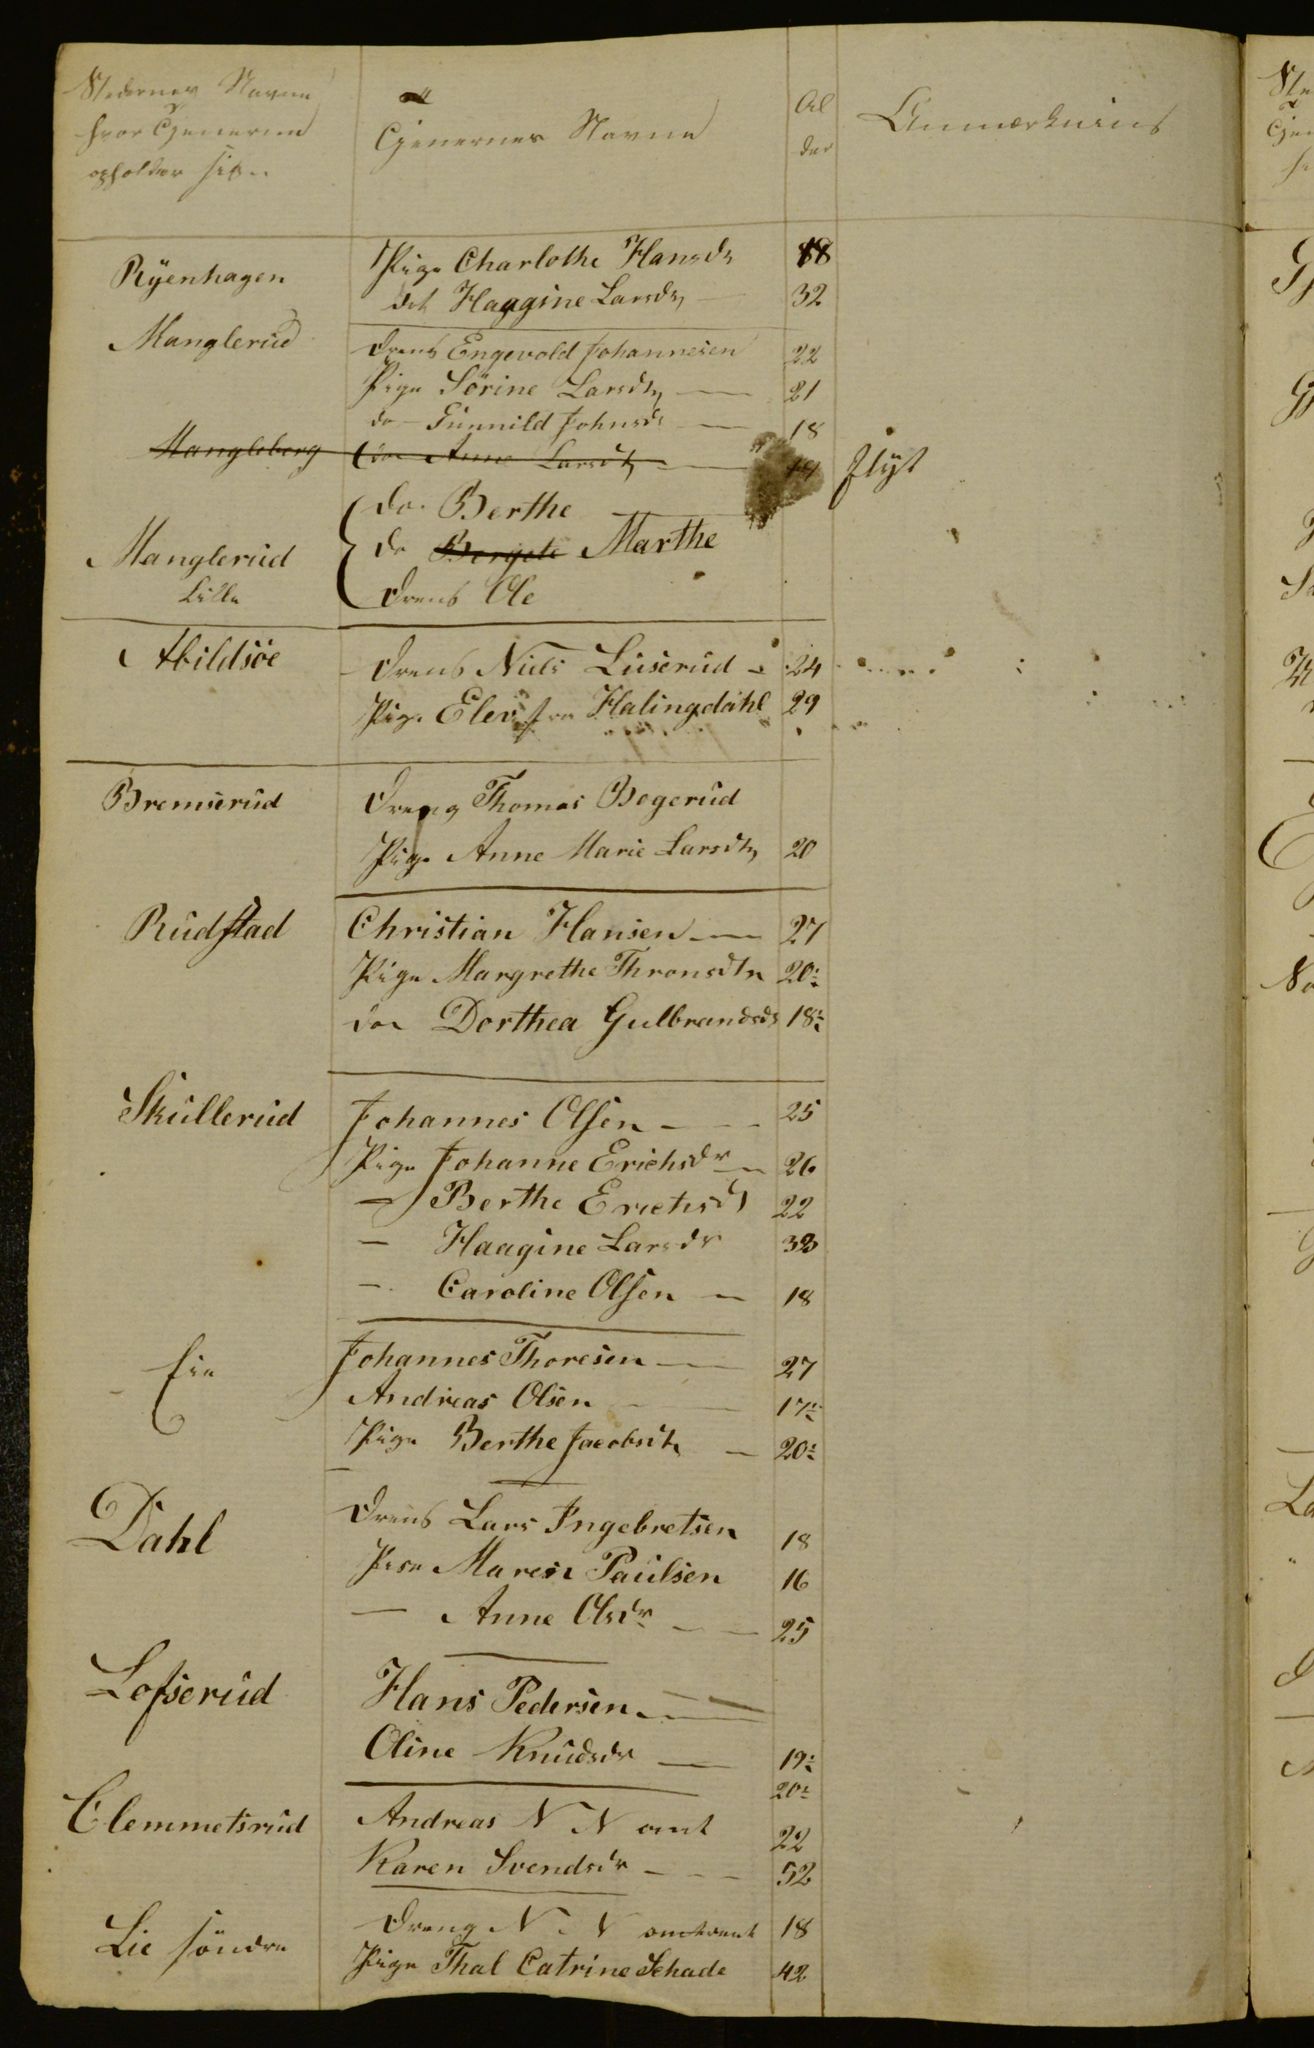 Stedernes Navne
hvor Tjenerne
opholder sig
Tjenernes Navne
Al
der
Anmærkning
Ryenhagen Pige Charlothe Hansdr 18
do Haagine Larsdr 32
Manglerud Dreng Engevold Johannesen 22
Pige Sörine Larsdtr 21
do Gunnild Johnsdr 18
Mangleberg do Anne Larsdtr flyt
do Berthe
Manglerud do Bergete Marthe
Lille Dreng Ole
Abildsöe Dreng Niels Liuserud 24
Pige Elev fra Halingdahl 29
Bremserud Dreng Thomas Bogerud
Pige Anne Marie Larsdtr 20
Rudstad Christian Hansen 27
Pige Margrethe Thronsdtr 20
do Dorthea Gulbrandsdr 18
Skullerud Johannes Olsen 25
Pige Johanne Erichsdr 26
— Berthe Erichsd 22
— Haagine Larsdr 33
— Caroline Olsen 18
Lie Johannes Thoresen 27
Andreas Olsen 17
Pige Berthe Jacobsdtr 20
Dahl Dreng Lars Ingebretsen 18
Pige Maren Paulsen 16
— Anne Olsdr 25
Lofserud Hans Pedersen
Oline Knudsdr 19
20
Clemmetsrud Andreas N N omt 22
Karen Svendsdr 52
Lie söndre Dreng N. N omtrent 18
Pige Thal Catrine Schade 42